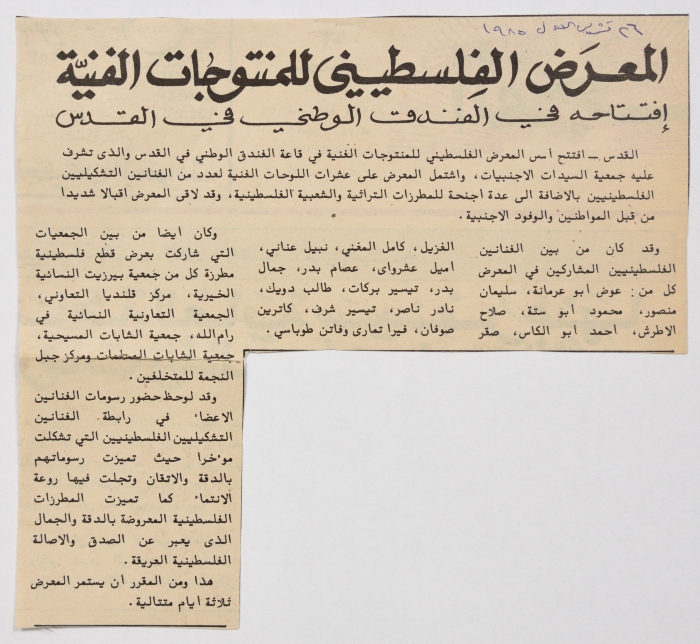 ٢٦ تشرين الاول ١٩٨٥
المعرَض الفِلسطيني للمنتوجات الفنيّة
إفتتاحه في الفندق الوطني في القدس
القدس ــ افتتح أمس المعرض الفلسطيني للمنتوجات الفنية في قاعة الفندق الوطني في القدس والذى تشرف
عليه جمعية السيدات الاجنبيات، واشتمل المعرض على عشرات اللوحات الفنية لعدد من الفنانين التشكيليين
الفلسطينيين بالاضافة الى عدة أجنحة للمطرزات التراثية والشعبية الفلسطينية، وقد لاقى المعرض اقبالا شديدا
من قبل المواطنين والوفود الاجنبية.
وقد كان من بين الفنانين
الفلسطينيين المشاركين في المعرض
كل من: عوض أبو عرمانة، سليمان
منصور، محمود أبو ستة، صلاح
الاطرش، أحمد أبو الكاس، صقر
الغزيل، كامل المغني، نبيل عناني،
اميل عشرواى، عصام بدر، جمال
بدر، تيسير بركات، طالب دويك،
نادر ناصر، تيسير شرف، كاترين
صوفان، فيرا تمارى وفاتن طوباسي.
وكان أيضا من بين الجمعيات
التي شاركت بعرض قطع فلسطينية
مطرزة كل من جمعية بيرزيت النسائية
الخيرية، مركز قلنديا التعاوني،
الجمعية التعاونية النسائية في
رام الله، جمعية الشابات المسيحية،
جمعية الشابات المطمات ومركز جبل
النجمة للمتخلفين.
وقد لوحظ حضور رسومات الفنانين
الاعضاء في رابطة الفنانين
التشكيليين الفلسطينيين التي تشكلت
موٴخرا حيث تميزت رسوماتهم
بالدقة والاتقان وتجلت فيها روعة
الانتماء كما تميزت المطرزات
الفلسطينية المعروضة بالدقة والجمال
الذى يعبر عن الصدق والاصالة
الفلسطينية العريقة.
هذا ومن المقرر أن يستمر المعرض
ثلاثة أيام متتالية.